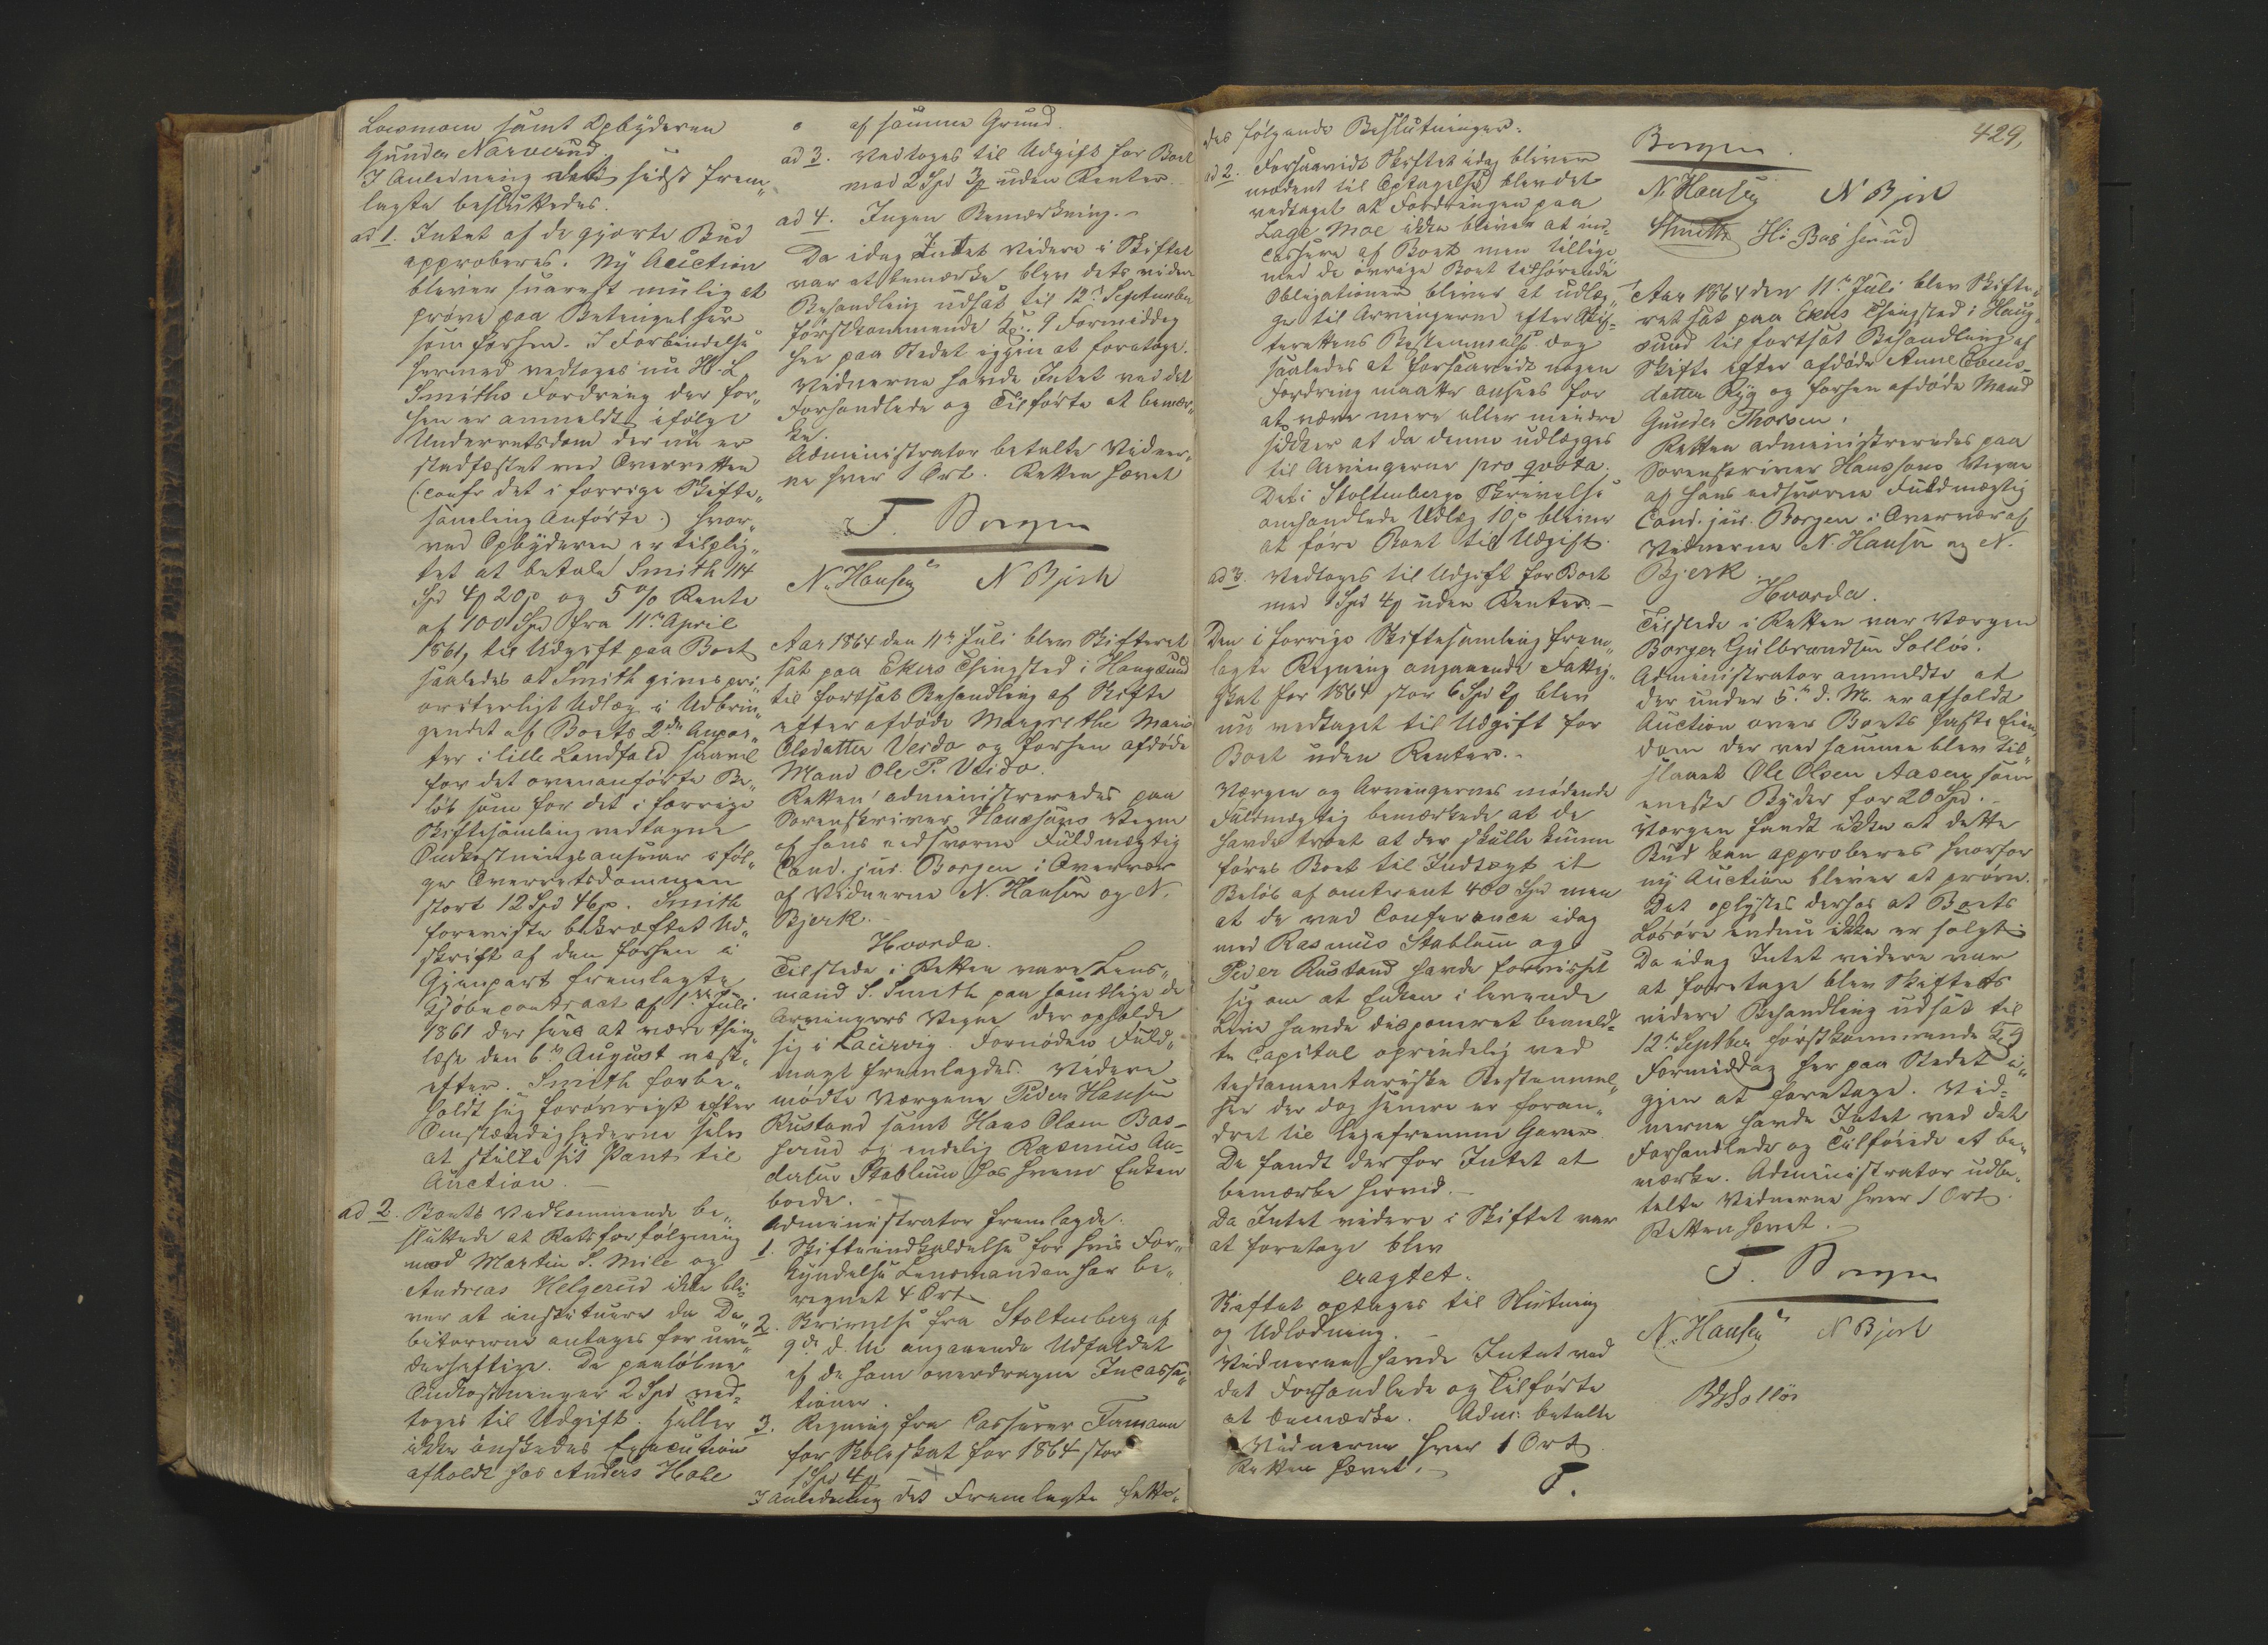 Loesmoen samt Opbyderen
Gunder Narverud.
I Anledning det sidst frem„
lagte besluttedes.
ad 1. Intet af de gjorte Bud
approberes. Ny Auction
bliver snarest mulig at
prøve paa Betingelser
som forhen. I Forbindelse
hermed vedtoges nu H. L.
Smiths Fordring der for„
hen er anmeldt ifølge
Underretsdom der nu er
stadfæstet ved Overretten
(: confr det i forrige Skifte„
samling Anførte :) hvor„
ved Opbyderen er tilplig„
tet at betale Smith 114
Spd 4 20 og 5 % Rente
af 100 Spd fra 11te April
1861, til Udgift paa Boet
saaledes at Smith gives pri„
oriterligt Udlæg i Udbrin„
gendet af Boets 2den Anpar„
ter i lille Landfald saavel
for det ovenanførte Be„
løb som for det i forrige
Skiftesamling vedtagne
Omkostningsansvar iføl„
ge Overretsdommen
stort 12 Spd 46. Smith
foreviste bekræftet Ud„
skrift af den forhen i
Gjenpart fremlagte
Kjøbecontract af 1ste Juli
1861 der sees at være thing„
læst den 6te August næst„
efter. Smith forbe„
holdt sig forøvrigt efter
Omstændighederne selv
at stille sit Pant til
Auction. —
ad 2. Boets Vedkommende be„
sluttede at Retsforfølgning
mod Martin S. Mile og
Andreas Helgerud ikke bli„
ver at instituere da De„
bitorerne antages for uve„
derheftige. De paaløbne
Omkostninger 2 Spd ved„
toges til Udgift. Heller
ikke ønskedes Execution
afholdt hos Anders Hole
af samme Grund.
ad 3. Vedtoges til Udgift for Boet
med 2 Spd 3 uden Renter.
ad 4. Ingen Bemærkning. –
Da idag Intet videre i Skiftet
var at bemærke blev dets videre
Behandling udsat til 12te September
førstkommende Kl. 9 Formiddag
her paa Stedet igjen at foretage.
Vidnerne havde Intet ved det
Forhandlede og Tilførte at bemær„
ke.
Administrator betalte Vidner„
ne hver 1 Ort. Retten hævet
T. Borgen
N. Hansen N Bjerk
Aar 1864 den 11te Juli blev Skifteret
sat paa Ekers Thingsted i Haugsund
til fortsat Behandling af Skifte
efter afdøde Margrethe Marie
Olsdatter Verdo og forhen afdøde
Mand Ole P. Verdo.
Retten administreredes paa
Sorenskriver Hanssons Vegne
af hans edsvorne Fuldmægtig
Cand. jur. Borgen i Overvær
af Vidnerne N. Hansen og N.
Bjerk.
Hvorda.
Tilstede i Retten vare Lens„
mand S. Smith paa samtlige de
Arvingers Vegne der opholde
sig i Laurvig. Fornøden Fuld„
magt fremlagdes. Videre
mødte Værgerne Peder Hansen
Rustand samt Hans Olsen Bas„
herud og endelig Rasmus An„
dersen Stablum hos hvem Enken
boede. –
Administrator fremlagde:
1. Skifteindkaldelse for hvis For„
kyndelse Lensmanden har be„
regnet 4 Ort
2. Skrivelse fra Stoltenberg af
9de d. M. angaaende Udfaldet
af de ham overdragne Incassa„
tioner.
3. Regning fra Casserer Formann
for Skoleskat for 1864 stor
1 Spd 4
I Anledning det Fremlagte fatte„
429,
des følgende Beslutninger:
ad 2. Forsaavidt Skiftet idag bliver
modent til Optagelse blev det
vedtaget at Fordringen paa
Lage Moe ikke bliver at ind„
cassere af Boet men tillige
med de øvrige Boet tilhørende
Obligationer bliver at udlæg„
ge til Arvingerne efter Skif„
terettens Bestemmelse dog
saaledes at forsaavidt nogen
Fordring maatte ansees for
at være mere eller mindre
sikker at da denne udlægges
til Arvingerne pro qvota.
Det i Stoltenbergs Skrivelse
omhandlede Udlæg 10 bliver
at føre Boet til Udgift.
ad 3. Vedtoges til Udgift for Boet
med 1 Spd 4 uden Renter. –
Den i forrige Skiftesamling frem„
lagte Regning angaaende Fattig„
skat for 1864 stor 6 Spd 2 blev
nu vedtaget til Udgift for
Boet uden Renter. –
Værgen og Arvingernes mødende
Fuldmægtig bemærkede at de
havde troet at der skulle kunne
føres Boet til Indtægt et
Beløb af omtrent 400 Spd men
at de ved Conference idag
med Rasmus Stablum og
Peder Rustand havde forvisset
sig om at Enken i levende
Live havde disponeret bemeld„
te Capital oprindelig ved
testamentariske Bestemmel„
ser der dog senere er foran„
dret til legefremme Gaver
De fandt derfor Intet at
bemærke herved. –
Da Intet videre i Skiftet var
at foretage blev
eragtet:
Skiftet optages til Slutning
og Udlodning. –
Vidnerne havde Intet ved
det Forhandlede og Tilførte
at bemærke. Adm. betalte
Vidnerne hver 1 Ort
Retten hævet. –
T.
Borgen.
N. Hansen N Bjerk
Smith H. Basherud
Aar 1864 den 11te Juli blev Skifte„
ret sat paa Ekers Thingsted i Haug„
sund til fortsat Behandling af
Skifte efter afdøde Anne Enens„
datter Ryg og forhen afdøde Mand
Gunder Thorsen.
Retten administreredes paa
Sorenskriver Hanssons Vegne
af hans edsvorne Fuldmægtig
Cand. jur. Borgen i Overvær af
Vidnerne N. Hansen og N.
Bjerk
Hvorda.
Tilstede i Retten var Værgen
Borger Gulbrandsen Solløs.
Administrator anmeldte at
der under 5te d. M. er afholdt
Auction over Boets faste Eien„
dom der ved samme blev til„
slaaet Ole Olsen Aasen som
eneste Byder for 20 Spd. –
Værgen fandt ikke at dette
Bud kan approberes hvorfor
ny Auction bliver at prøve.
Det oplystes derhos at Boets
Løsøre endnu ikke er solgt.
Da idag Intet videre var
at foretage blev Skiftets
videre Behandling udsat til
12te Septbr førstkommende Kl 9
Formiddag her paa Stedet i„
gjen at foretage. Vid„
nerne havde Intet ved det
Forhandlede og Tilførte at be„
mærke. Administrator udbe„
talte Vidnerne hver 1 Ort.
Retten hævet. –
T. Borgen
N. Hansen N Bjerk
BGSolløs